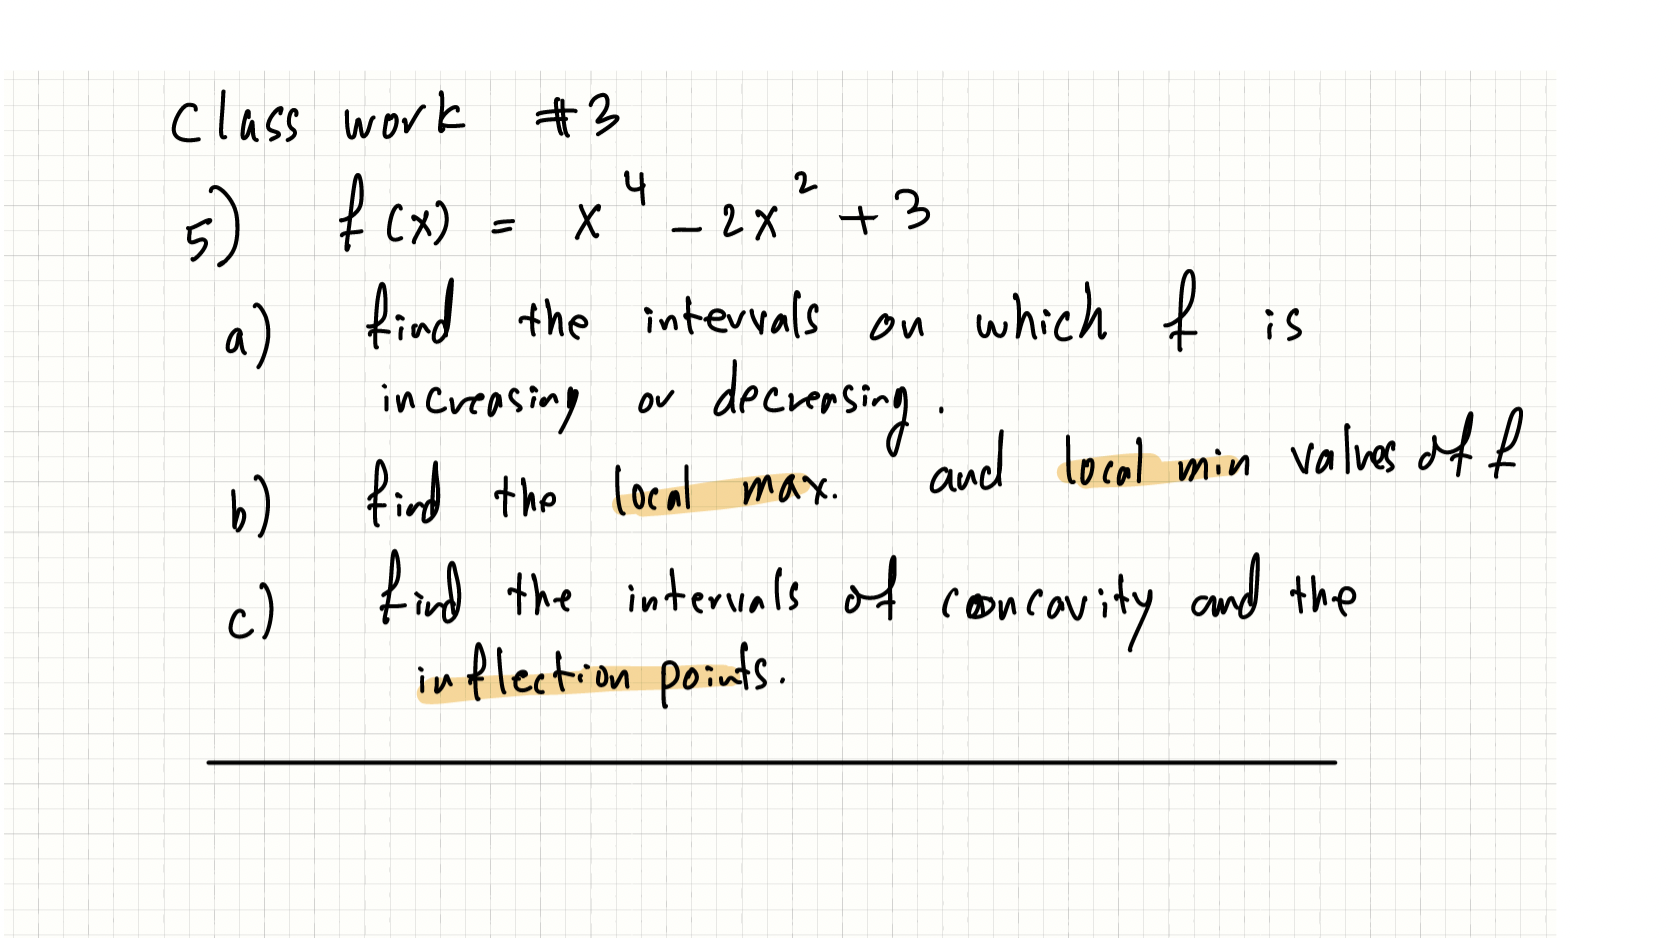 Class work #3
5) f(x) = x⁴ - 2x² + 3
a) find the intervals on which f is
increasing or decreasing.
b) find the local max. and local min values of f
c) find the intervals of concavity and the
inflection points.